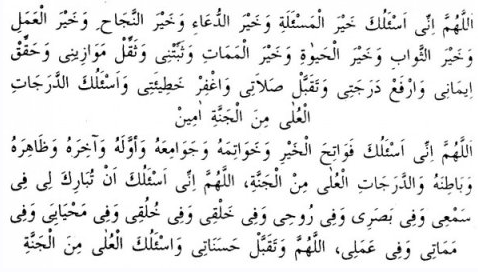 اَللّٰهُمَّ اِنِّى اَسْئَلُكَ خَيْرَ الْمَسْئَلَةِ وَخَيْرَ الدُّعَاءِ وَخَيْرَ النَّجَاحِ وَخَيْرَ الْعَمَلِ
وَخَيْرَ الثَّوَابِ وَخَيْرَ الْحَيٰوةِ وَخَيْرَ الْمَمَاتِ وَثَبِّتْنِى وَثَقِّلْ مَوَازِينِى وَحَقِّقْ
اِيمَانِى وَارْفَعْ دَرَجَتِى وَتَقَبَّلْ صَلَاَتِى وَاغْفِرْ خَطِيئَتِى وَاَسْئَلُكَ الدَّرَجَاتِ
الْعُلٰى مِنَ الْجَنَّةِ اٰمِينْ
اَللّٰهُمَّ اِنِّى اَسْئَلُكَ فَوَاتِحَ الْخَيْرِ وَخَوَاتِمَهُ وَجَوَامِعَهُ وَاَوَّلَهُ وَآخِرَهُ وَظَاهِرَهُ
وَبَاطِنَهُ وَالدَّرَجَاتِ الْعُلٰى مِنْ الْجَنَّةِ، اَللّٰهُمَّ اِنِّى اَسْئَلُكَ اَنْ تُبَارِكَ لِى فِى
سَمْعِى وَفِى بَصَرِى وَفِى رُوحِى وَفِى خَلْقِى وَفِى خُلُقِى وَفِى مَحْيَايَى وَفِى
مَمَاتِى وَفِى عَمَلِى، اَللّٰهُمَّ وَتَقَبَّلْ حَسَنَاتِى وَاَسْئَلُكَ الْعُلٰى مِنَ الْجَنَّةِ